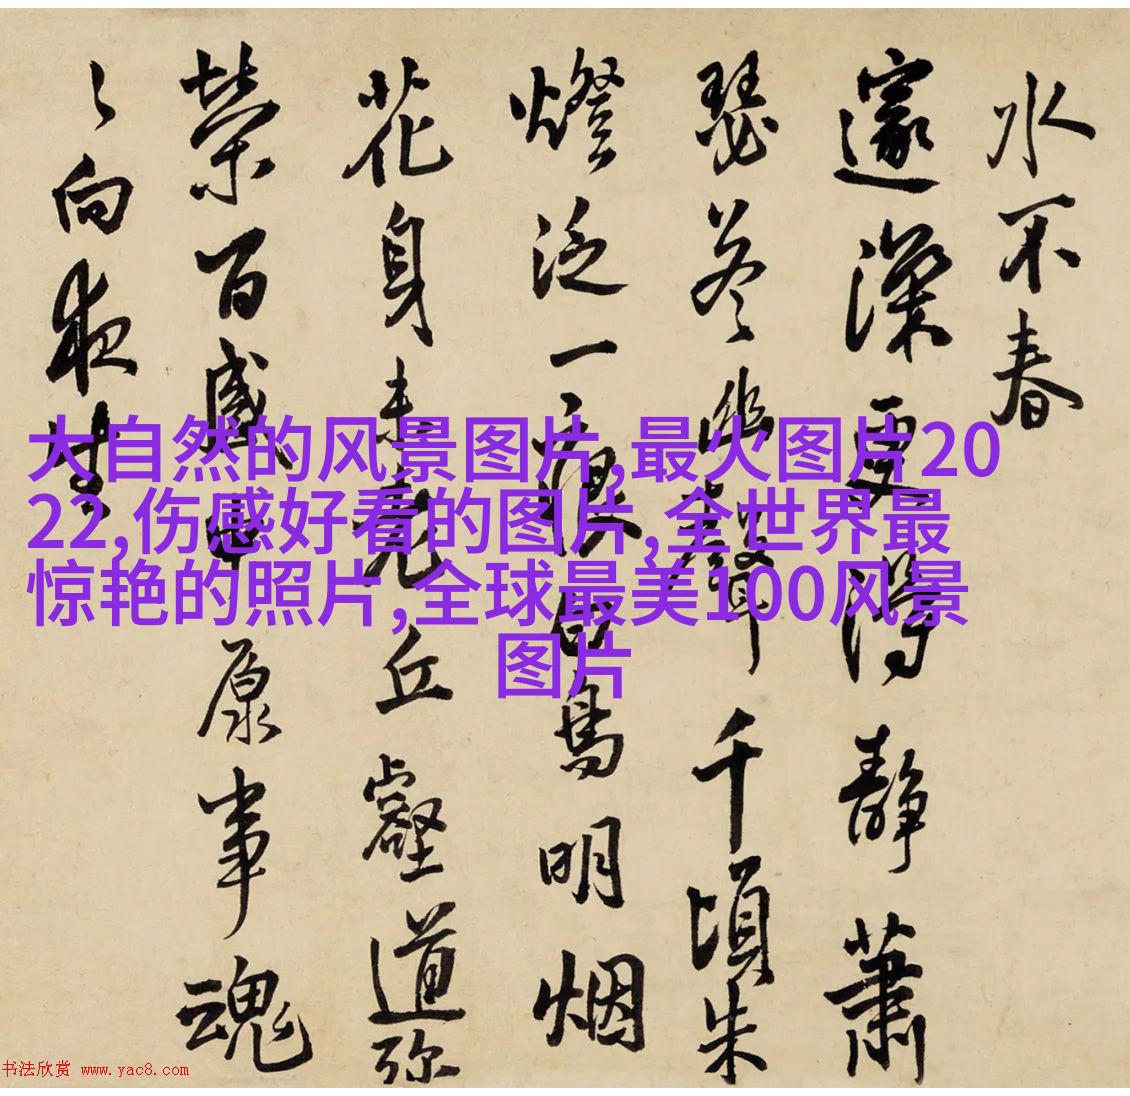 水不春
邃深更得静蕭
瑟幽聲千頃朱
燈泛一痕白鳥明烟
花身未完丘壑道弥
榮百感中原事魂
向夜
大自然的风景图片,最火图片20
22,伤感好看的图片,全世界最
惊艳的照片,全球最美100风景
图片
书法欣赏 www.yac8.com